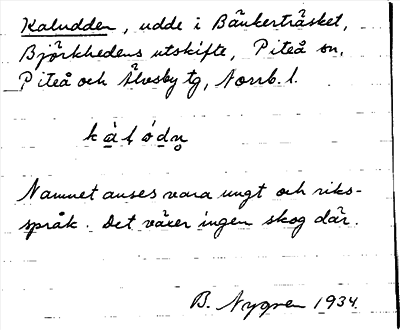 Kaludden, udde i Bänkerträsket,
Björkhedens utskifte, Piteå sn,
Piteå och Älvsby tg, Norrb. l.
kàlódn̥
Namnet anses vara ungt och riks-
språk. Det växer ingen skog där.
B. Nygren 1934.